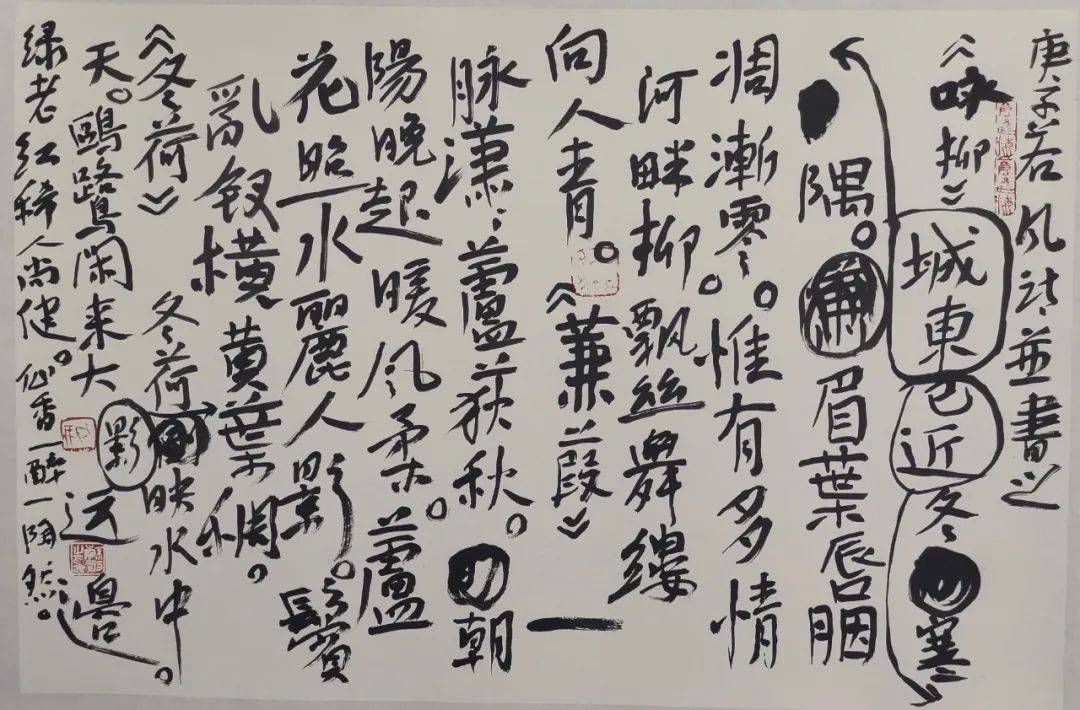 庚子若风诗並書之
《咏柳》城東已近冬寒
隅。眉葉唇胭
凋漸零。惟有多情
河畔柳。飄絲舞縷
向人青。《蒹葮》一
脉潇々蘆荻秋。朝
陽晚起暖风柔。蘆
花照水麗人影。鬢
亂釵横黄葉稠。
《冬荷》冬荷影映水中
天。鷗鷺闲来大运邊。
绿老红稀人尚健。香一醉一陶然。